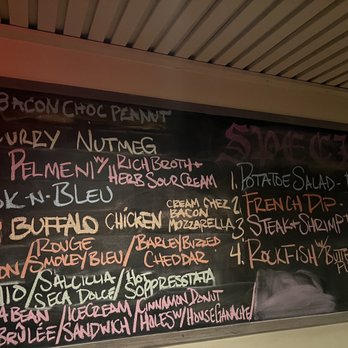 BACON CHOC PEANUT
CURRY NUTMEG
PELMENI W/ RICH BROTH +
HERB SOUR CREAM
K-N-BLEU
BUFFALO CHICKEN CREAM CHEZ
BACON
MOZZARELLA
ROUGE / BARLEY BUZZED
/ SMOKEY BLEU / CHEDDAR
/ SALCICCIA / HOT
SECA DOLCE / SOPPRESSTATA
BEAN / ICECREAM / CINNAMON DONUT
BRÛLÉE / SANDWICH / HOLES W/ HOUSE GANACHE /
1. POTATOE SALAD -
2. FRENCH DIP -
3. STEAK + SHRIMP
4. ROCKFISH W/